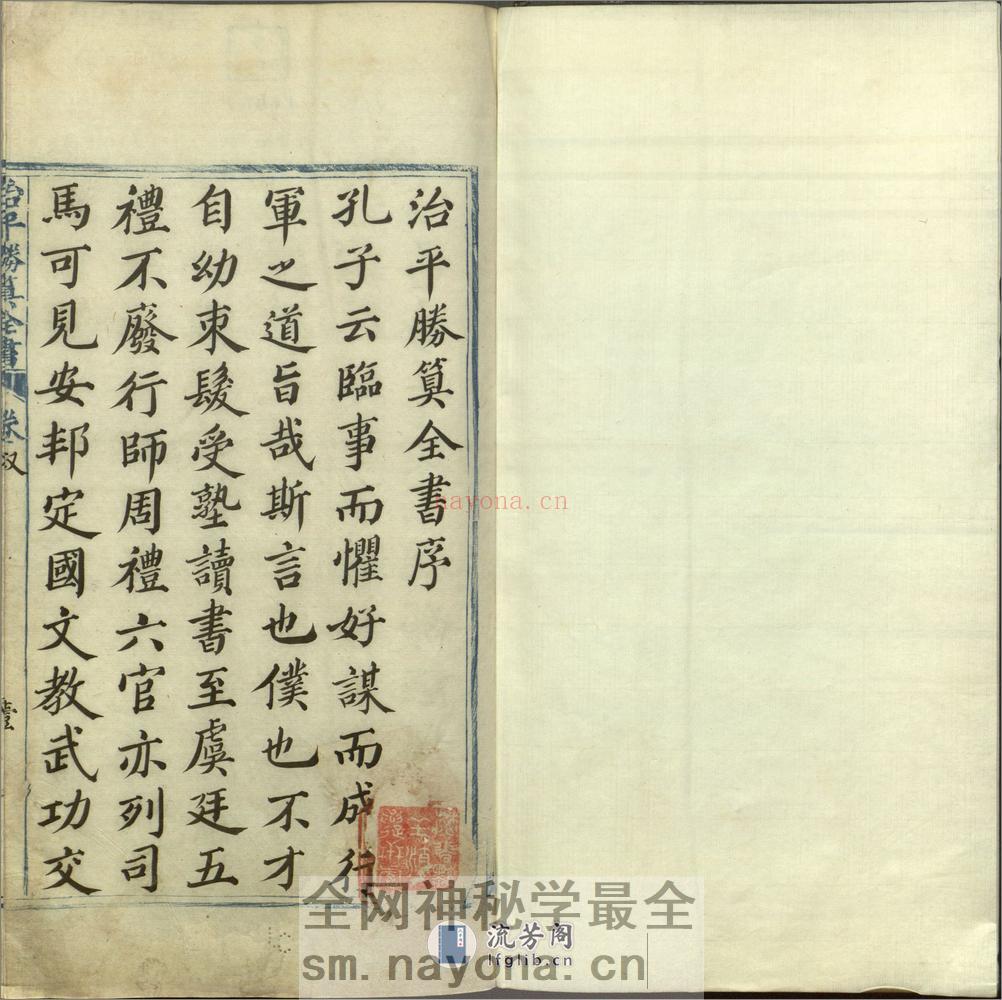 治平勝算全書序
孔子云臨事而懼好謀而成行
軍之道旨哉斯言也僕也不才
自幼束髮受塾讀書至虞廷五
禮不廢行師周禮六官亦列司
馬可見安邦定國文教武功交
治平勝算全書 卷 叙
壹
nayona.cn
全网神秘学最全
流芳阁
lfglib.cn
sm.nayona.cn